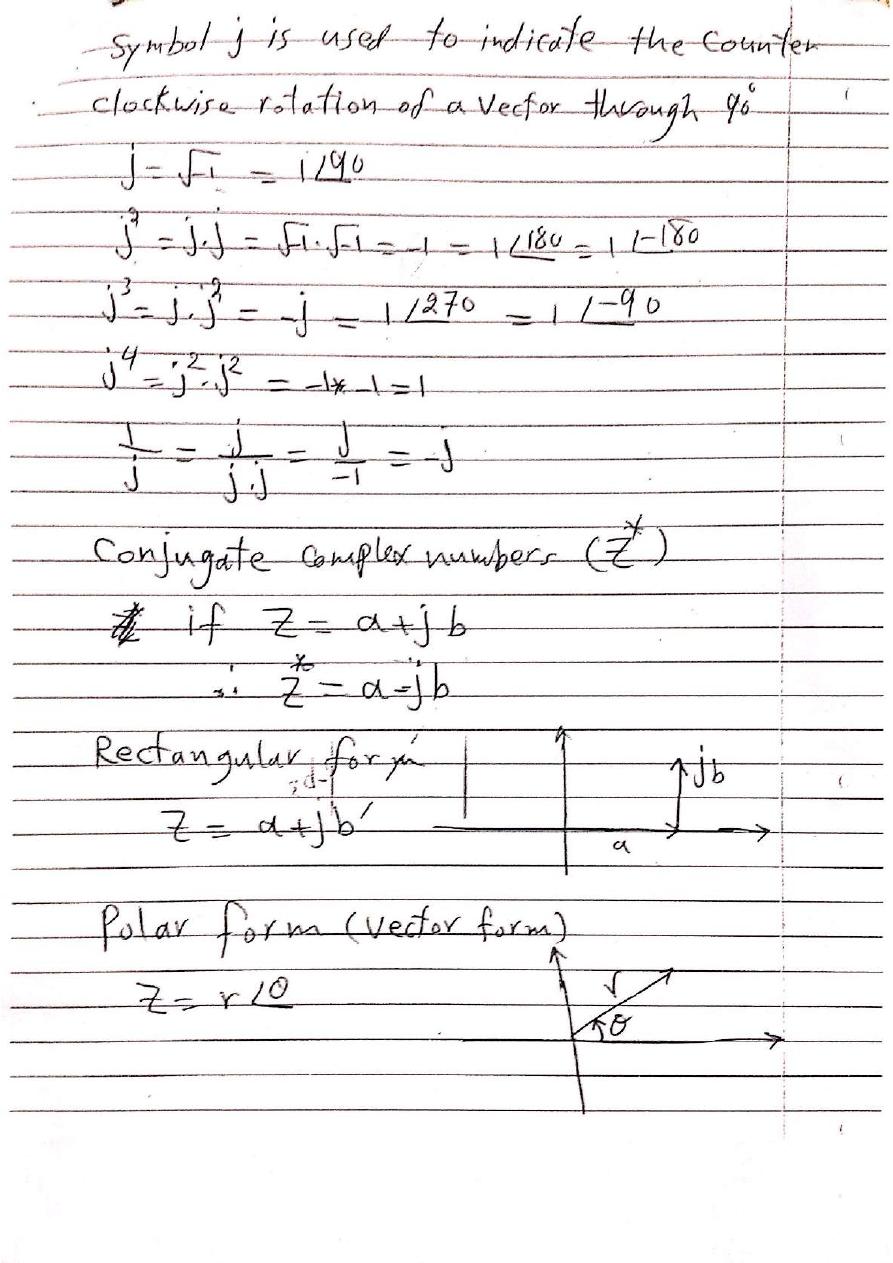 Symbol j is used to indicate the Counter
clockwise rotation of a Vector through 90°
j = √-1 = 1∠90
j² = j.j = √-1.√-1 = -1 = 1∠180 = 1∠-180
j³ = j.j² = -j = 1∠270 = 1∠-90
j⁴ = j².j² = -1*-1=1
1/j = j/j.j = j/-1 = -j
Conjugate Complex numbers (Z*)
if Z = a+jb
∴ Z* = a-jb
Rectangular form
jb
Z = a+jb
a
Polar form (vector form)
Z = r∠θ
r
θ